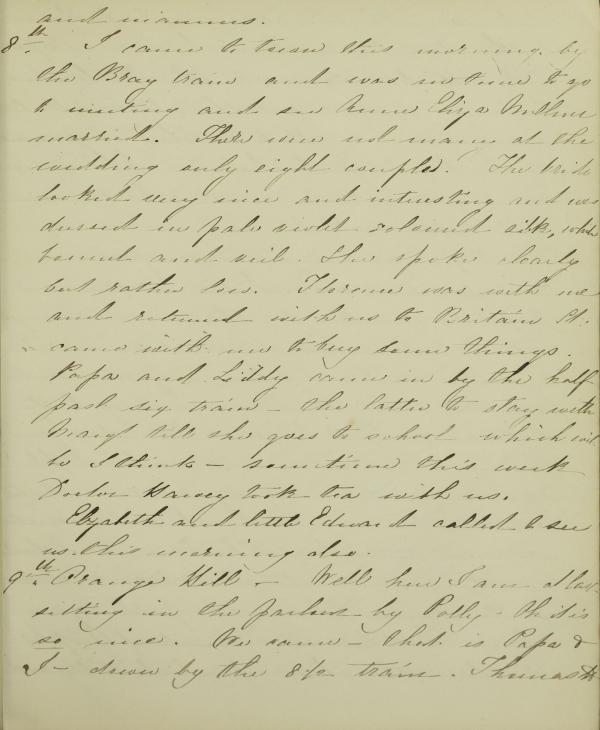 and manners.
8th. I came to town this morning by
the Bray train and was in time to go
to meeting and see Anne Eliza
married. There were not many at the
wedding only eight couples. The bride
looked very nice and interesting and was
dressed in pale violet coloured silk, white
bonnet and veil. She spoke clearly
but rather low. Florence was with me
and returned with us to Britain St:
came with me to buy some things.
Papa and Liddy came in by the half
past six train – the latter to stay with
Margt till she goes to school which will
be I think – sometime this week
Doctor Harvey took tea with us.
Elizabeth and little Edward called to see
us this morning also.
9th. Orange Hill – Well here I am at last
sitting in the parlour by Polly – Oh it is
so nice. We came – that is Papa &
I – down by the 8½ train. Thomas